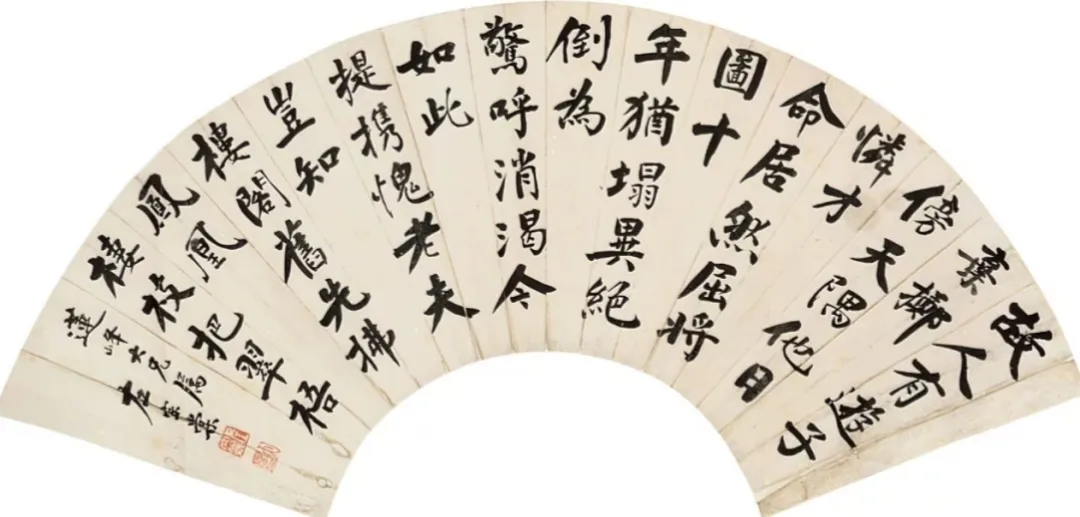 故人有遊子
棄擲
傍天隅他日
憐才
命居然屈將
圖十
年猶塌異絕
倒為
驚呼消渴今
如此
提携愧老夫
豈知
樓閣舊先拂
鳳凰
棲枝把翠梧
蓮峰大兄屬
左宗棠